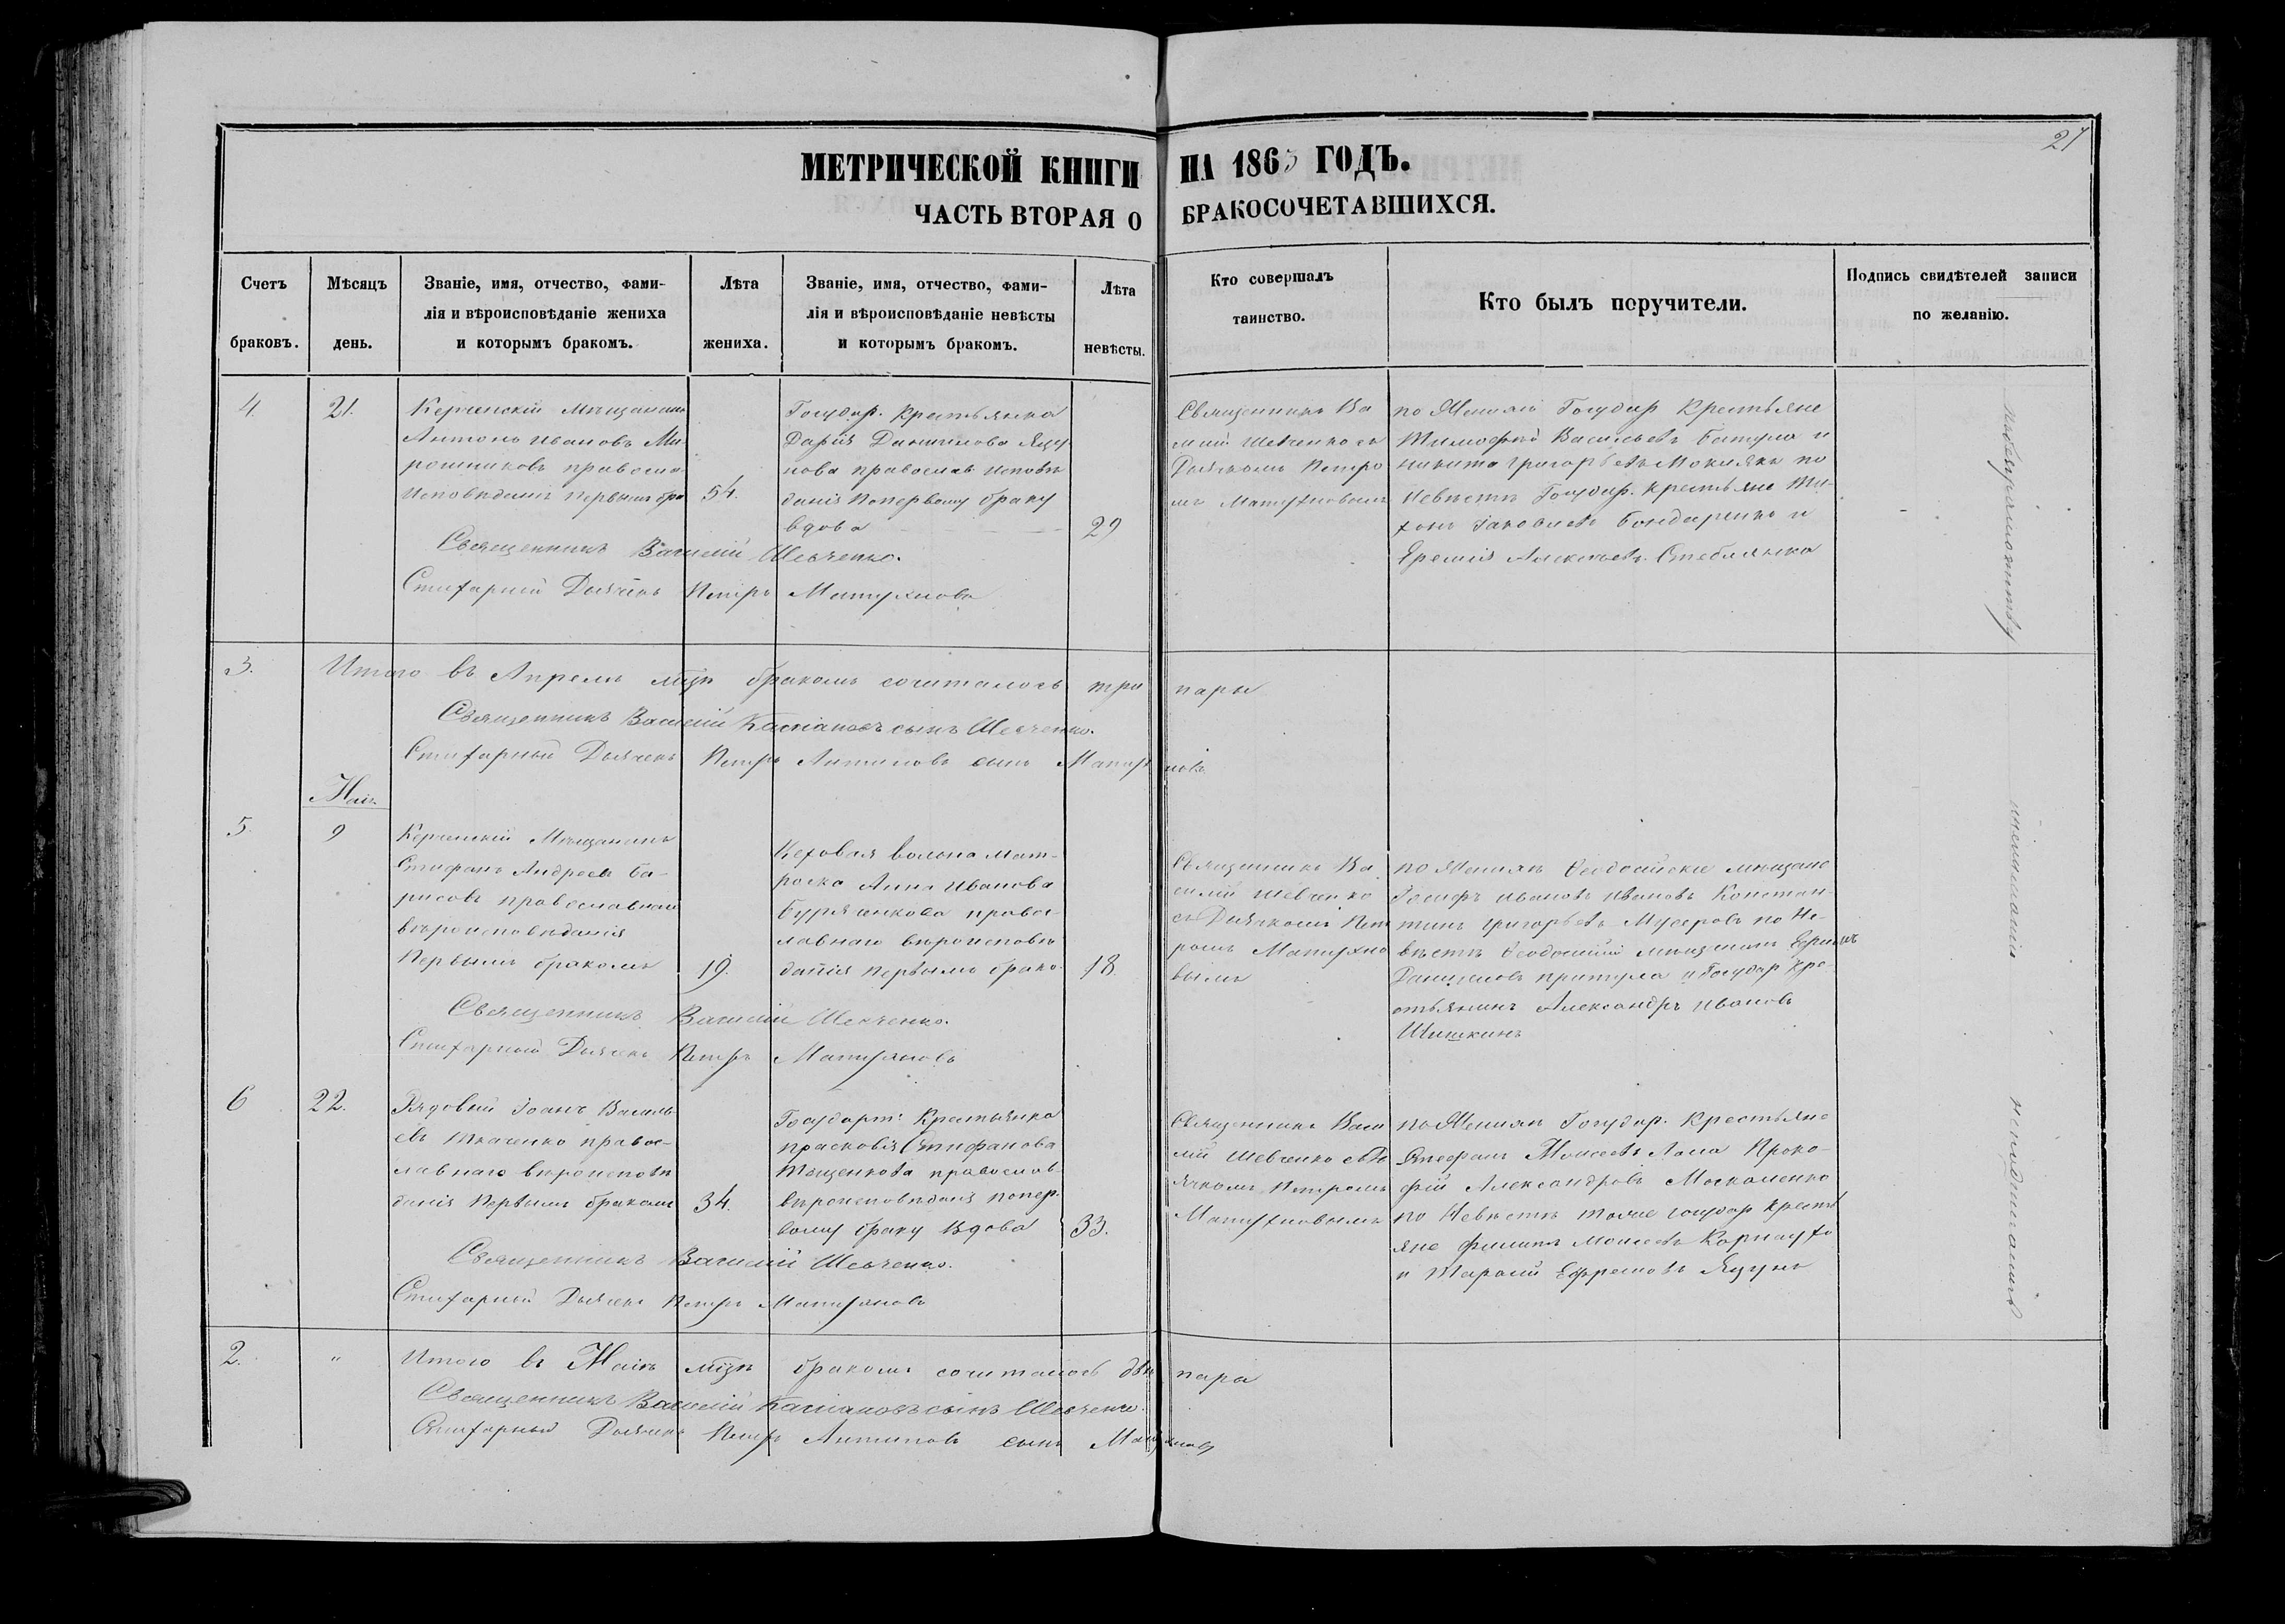 27
МЕТРИЧЕСКОЙ КНИГИ НА 1863 ГОДЪ.
ЧАСТЬ ВТОРАЯ О БРАКОСОЧЕТАВШИХСЯ.
Счетъ браковъ.
Мѣсяцъ день.
Званіе, имя, отчество, фами-
лія и вѣроисповѣданіе жениха
и которымъ бракомъ.
Лѣта жениха.
Званіе, имя, отчество, фами-
лія и вѣроисповѣданіе невѣсты
и которымъ бракомъ.
Лѣта невѣсты.
Кто совершалъ
таинство.
Кто былъ поручители.
Подпись свидѣтелей записи
по желанію.
4.
21.
Керченскій Мѣщанинъ
Антонъ Ивановъ Ми-
рошниковъ православ
Исповѣданія первымъ бра
54.
Государ. Крестьянка
Дарія Даниилова Яцу
нова православ исповѣ
данія По первому браку
вдова
29
Священникъ Ва
силій Шевченко съ
Дьячкомъ Петро
мъ Матухновымъ
по Женихѣ Государ Крестьяне
Тимофей Васильевъ Батула и
Никита Григорьевъ Мокиякъ по
Невѣстѣ Государ. Крестьяне Ти-
хонъ Іаковлевъ Бондаренко и
Еремія Алексѣевъ Стеблянко
Священникъ Василій Шевченко.
Стихарный Дьячекъ Петръ Матухновъ
3.
Итого въ Апрелѣ мцѣ бракомъ сочиталось три пары
Священникъ Василій Касіановъ сынъ Шевченко.
Стихарный Дьячекъ Петръ Антиповъ сынъ Матухновъ
Маій
5
9
Керченскій Мѣщанинъ
Стефанъ Андреевъ Ба-
рисовъ православнаго
вѣроисповѣданія
Первымъ бракомъ
19.
роска Анна Иванова
Бурячикова право-
славнаго вѣроисповѣ
данія первымъ брако
18.
Священникъ Ва
силій Шевченко
съ Дьячкомъ Пет
ромъ Матухно
вымъ
по Женихѣ Ѳеодосійскіе мѣщане
Іосифъ Ивановъ Ивановъ Констан-
тинъ Григорьевъ Мусеровъ по Не-
вѣстѣ Ѳеодосійскій мѣщанинъ
Даниловъ Притула и Государ Кре-
стьянинъ Александръ Ивановъ
Шишкинъ
Священникъ Василій Шевченко.
Стихарный Дьячекъ Петръ Матухновъ
6
22.
Рядовый Іоанъ Василь
евъ Ткаченко право-
славнаго вѣроисповѣ
данія Первымъ бракомъ
34.
Государст. Крестьянка
Прасковія Стифанова
Тищенкова православ
вѣроисповѣданія по пер
вому браку Вдова
33.
Священникъ Васи
лій Шевченко съ Дь
ячкомъ Петромъ
Матухновымъ
по Женихѣ Государ. Крестьяне
Стефанъ Моисеевъ Лапа Проко-
фій Александровъ Москаленко
по Невѣстѣ тоже государ крестья
яне Филипъ Моисеевъ Карнаухъ
и Тарасій Ефремовъ Яцунъ
Священникъ Василій Шевченко.
Стихарный Дьячекъ Петръ Матухновъ
2.
"
Итого въ Маіѣ мцѣ бракомъ сочиталось двѣ пара
Священникъ Василій Касіановъ сынъ Шевченко.
Стихарный Дьячекъ Петръ Антиповъ сынъ Матухновъ